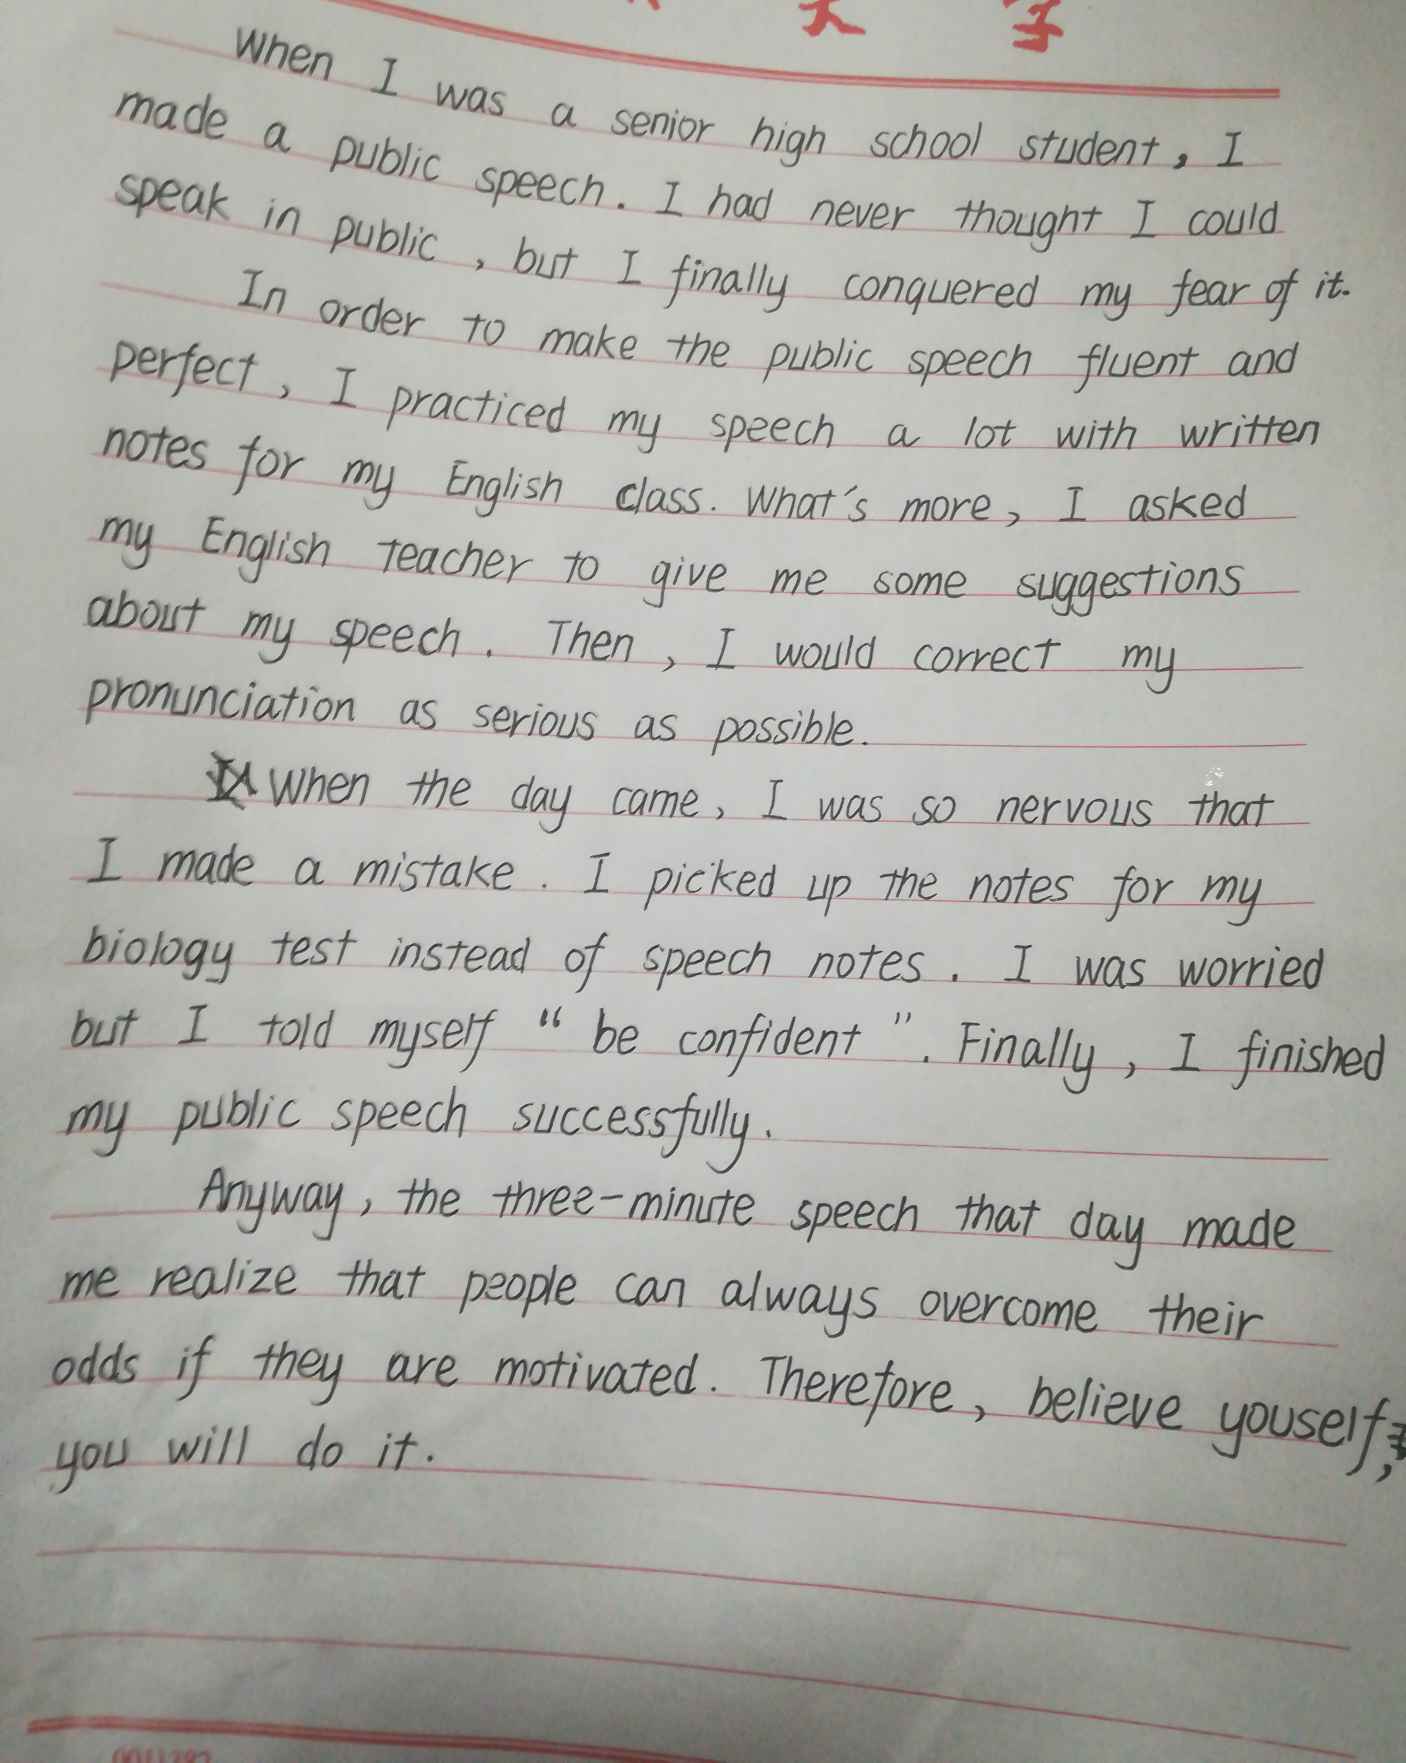 大 学
When I was a senior high school student, I
made a public speech. I had never thought I could
speak in public, but I finally conquered my fear of it.
In order to make the public speech fluent and
perfect, I practiced my speech a lot with written
notes for my English class. What's more, I asked
my English teacher to give me some suggestions
about my speech. Then, I would correct my
pronunciation as serious as possible.
When the day came, I was so nervous that
I made a mistake. I picked up the notes for my
biology test instead of speech notes. I was worried
but I told myself "be confident". Finally, I finished
my public speech successfully.
Anyway, the three-minute speech that day made
me realize that people can always overcome their
odds if they are motivated. Therefore, believe youself,
you will do it.